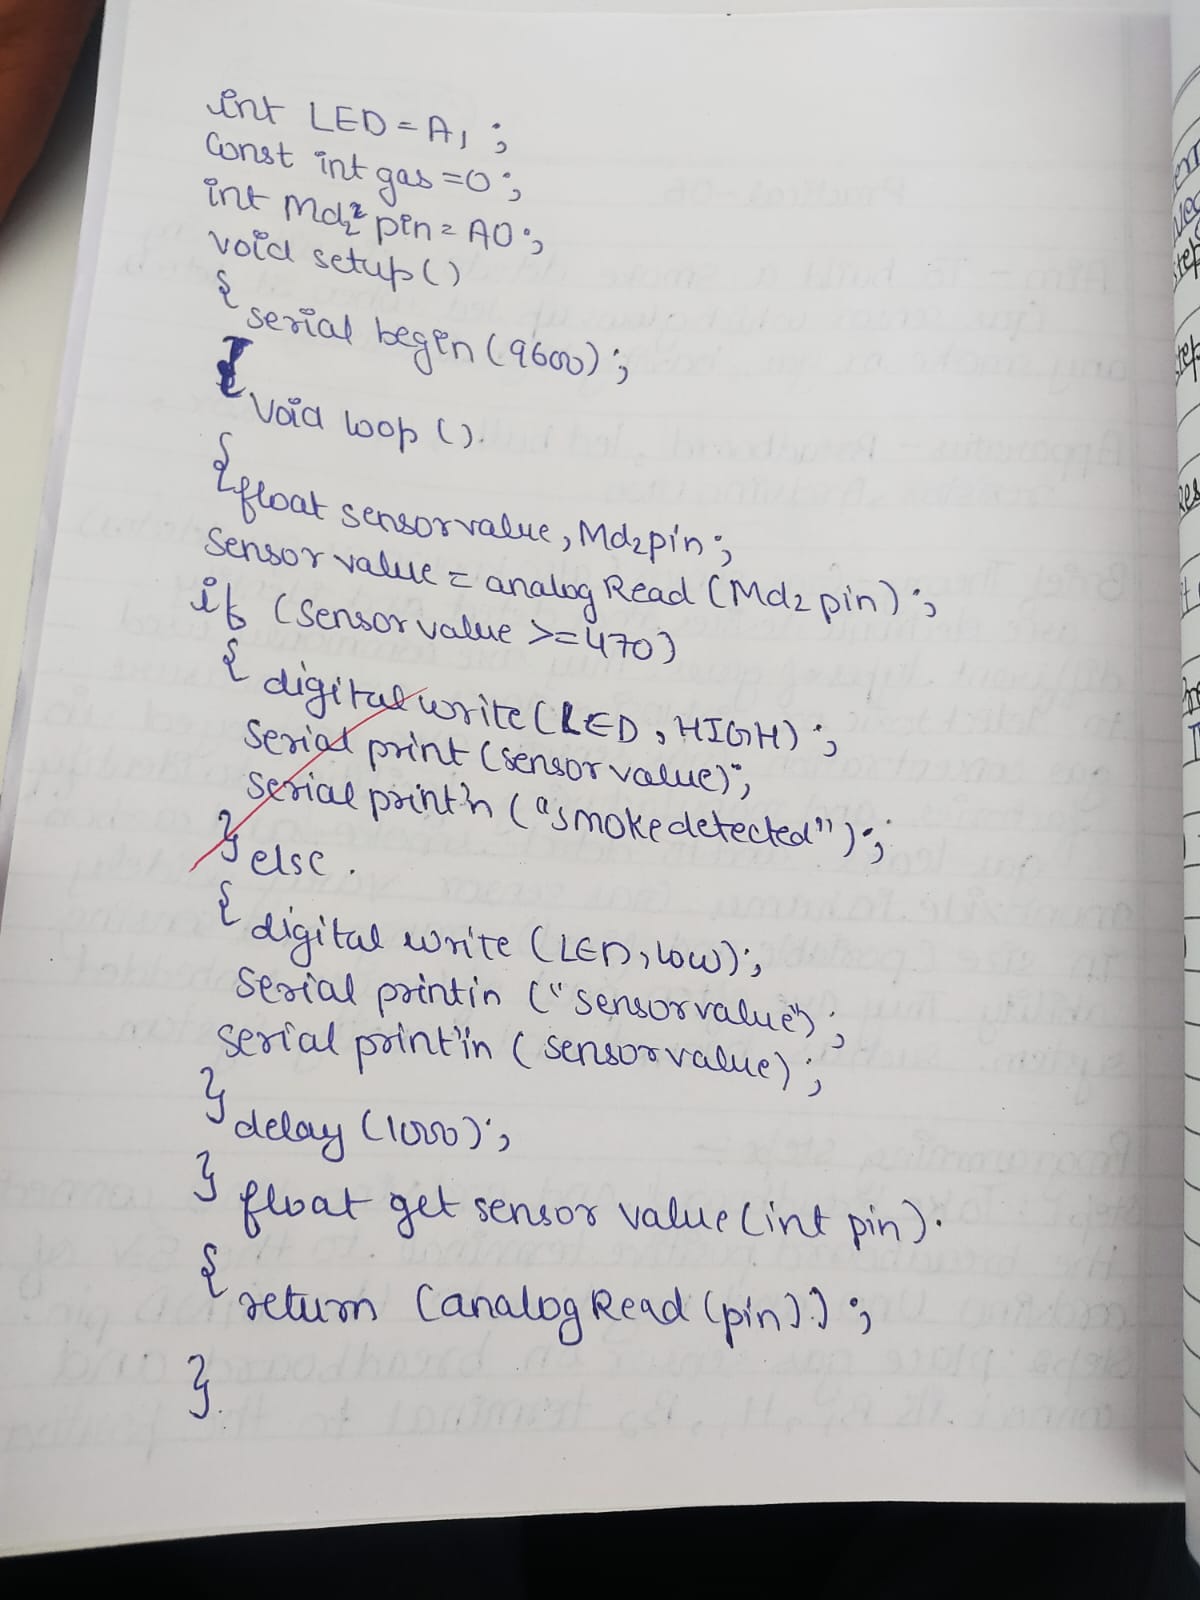 int LED = A1 ;
Const int gas = 0 ;
int Md2 pin = A0 ;
void setup ( )
{
serial begin ( 9600 ) ;
}
void loop ( ).
{
float sensorvalue , Md2pin ;
Sensor value = analog Read ( Md2 pin ) ;
if ( Sensor value >= 470 )
{ digital write ( LED , HIGH ) ;
Serial print ( sensor value ) ;
serial print'n ( "smokedetected" ) ;
} else .
{ digital write ( LED , low ) ;
Serial printin ( "sensorvalue" ) ;
serial print"in ( sensorvalue ) ;
}
delay ( 1000 ) ;
}
float get sensor value ( int pin ) .
{
return ( analog Read ( pin ) ) ;
}